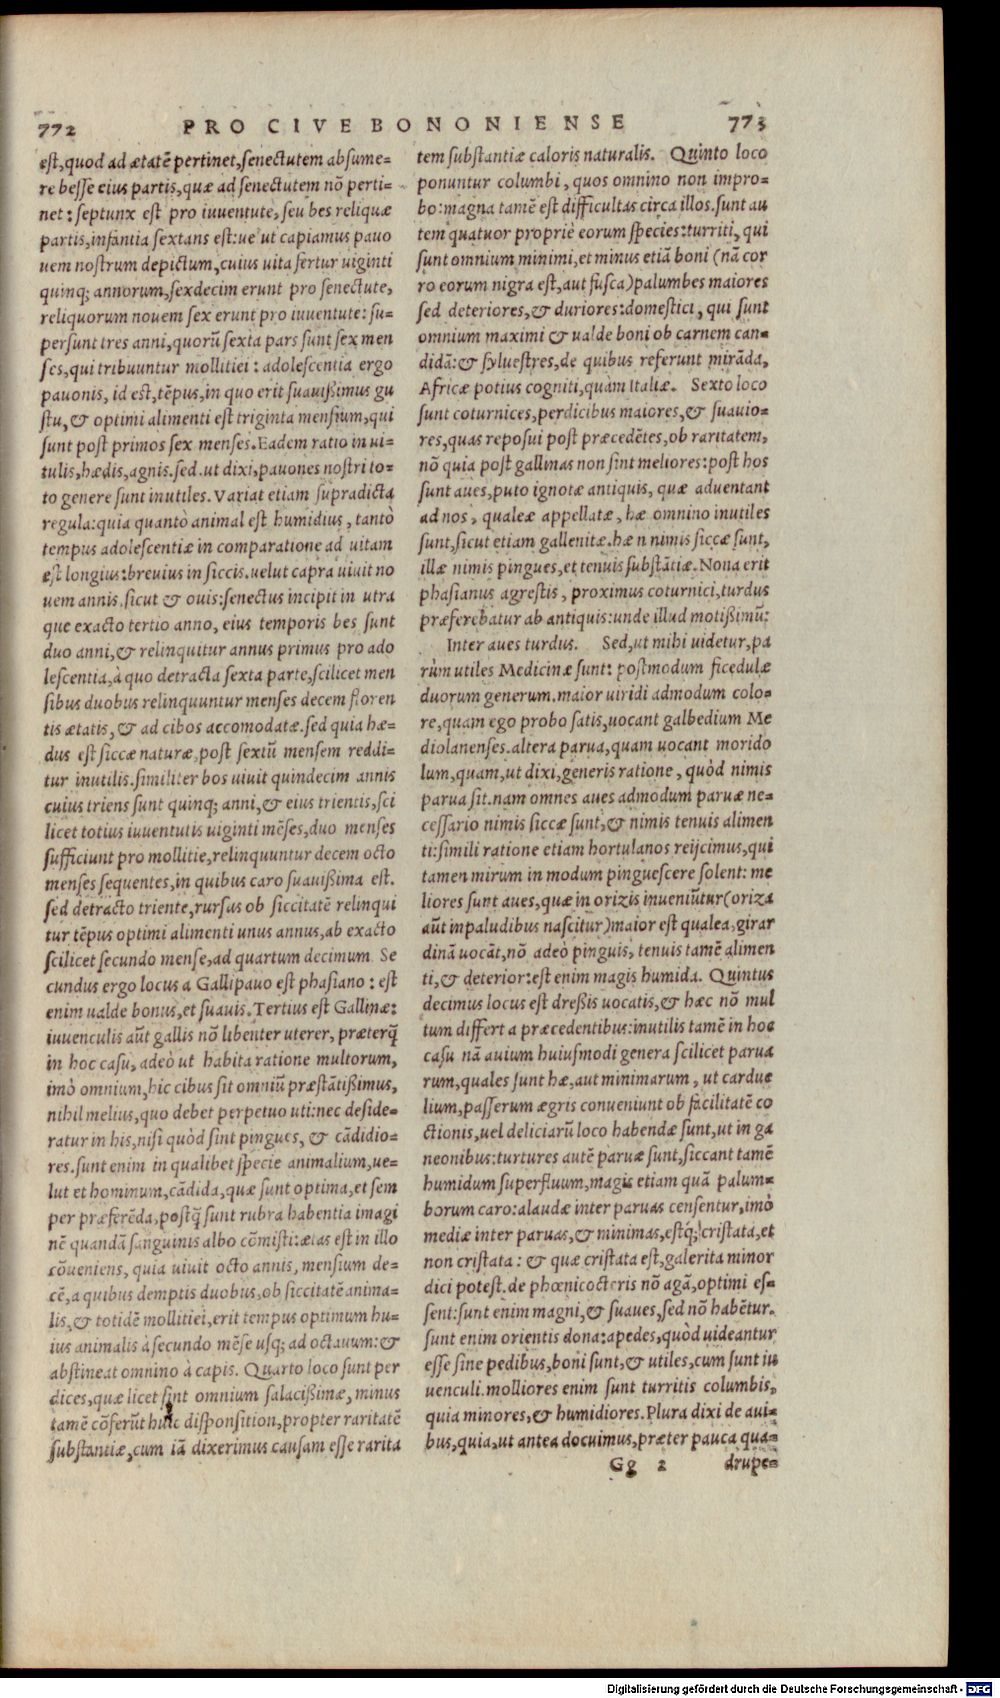 772 PRO CIVE BONONIENSE 773
est, quod ad ætatē pertinet, senectutem absume=
re besse eius partis, quæ ad senectutem nō perti=
net: septunx est pro iuuentute, seu bes reliquæ
partis, infantia sextans est: ue ut capiamus pauo
uem nostrum depictum, cuius uita fertur uiginti
quinq; annorum, sexdecim erunt pro senectute,
reliquorum nouem sex erunt pro iuuentute: su=
persunt tres anni, quorū sexta pars sunt sex men
ses, qui tribuuntur mollitiei: adolescentia ergo
pauonis, id est, tēpus, in quo erit suauißimus gu
stu, & optimi alimenti est triginta mensium, qui
sunt post primos sex menses. Eadem ratio in ui=
tulis, hædis, agnis. sed. ut dixi, pauones nostri to=
to genere sunt inutiles. Variat etiam supradicta
regula: quia quantò animal est humidius, tantò
tempus adolescentiæ in comparatione ad uitam
æst longius: breuius in siccis. uelut capra uiuit no
uem annis, sicut & ouis: senectus incipit in utra
que exacto tertio anno, eius temporis bes sunt
duo anni, & relinquitur annus primus pro ado
lescentia, à quo detracta sexta parte, scilicet men
sibus duobus relinquuntur menses decem floren
tis ætatis, & ad cibos accomodatæ. sed quia hæ=
dus est siccæ naturæ, post sextū mensem reddi=
tur inutilis. similiter bos uiuit quindecim annis
cuius triens sunt quinq; anni, & eius trientis, sci
licet totius iuuentutis uiginti mēses, duo menses
sufficiunt pro mollitie, relinquuntur decem octo
menses sequentes, in quibus caro suauißima est.
sed detracto triente, rursas ob siccitatē relinqui
tur tēpus optimi alimenti unus annus, ab exacto
scilicet secundo mense, ad quartum decimum. Se
cundus ergo locus a Gallipauo est phasiano: est
enim ualde bonus, et suauis. Tertius est Gallinæ:
iuuenculis aūt gallis nō libenter uterer, præterq̃
in hoc casu, adeò ut habita ratione multorum,
imò omnium, hic cibus sit omniū præstātißimus,
nihil melius, quo debet perpetuo uti: nec deside=
ratur in his, nisi quòd sint pingues, & cādidio=
res. sunt enim in qualibet specie animalium, ue=
lut et hominum, cādida, quæ sunt optima, et sem
per præferēda, postq̃ sunt rubra habentia imagi
nē quandā sanguinis albo cōmisti: ætas est in illo
cōueniens, quia uiuit octo annis, mensium de=
cē, a quibus demptis duobus, ob siccitatē anima=
lis, & totidē mollitiei, erit tempus optimum hu=
ius animalis à secundo mēse usq; ad octauum: &
abstineat omnino à capis. Quarto loco sunt per
dices, quæ licet sint omnium salacißimæ, minus
tamē cōferūt huic disponsition, propter raritatē
substantiæ, cum iā dixerimus causam esse rarita
tem substantiæ caloris naturalis. Quinto loco
ponuntur columbi, quos omnino non impro=
bo: magna tamē est difficultas circa illos. sunt au
tem quatuor propriè eorum species: turriti, qui
sunt omnium minimi, et minus etiā boni (nā cor
ro eorum nigra est, aut fusca) palumbes maiores
sed deteriores, & duriores: domestici, qui sunt
omnium maximi & ualde boni ob carnem can=
didā: & syluestres, de quibus referunt mirāda,
Africæ potius cogniti, quàm Italiæ. Sexto loco
sunt coturnices, perdicibus maiores, & suauio=
res, quas reposui post præcedētes, ob raritatem,
nō quia post gallinas non sint meliores: post hos
sunt aues, puto ignotæ antiquis, quæ aduentant
ad nos, qualeæ appellatæ, hæ omnino inutiles
sunt, sicut etiam gallenitæ. hæ n nimis siccæ sunt,
illæ nimis pingues, et tenuis substātiæ. Nona erit
phasianus agrestis, proximus coturnici, turdus
præferebatur ab antiquis: unde illud motißimū:
Inter aues turdus. Sed, ut mihi uidetur, pa
rùm utiles Medicinæ sunt: postmodum ficedulæ
duorum generum. maior uiridi admodum colo=
re, quam ego probo satis, uocant galbedium Me
diolanenses. altera parua, quam uocant morido
lum, quam, ut dixi, generis ratione, quòd nimis
parua sit. nam omnes aues admodum paruæ ne=
cessario nimis siccæ sunt, & nimis tenuis alimen
ti: simili ratione etiam hortulanos reijcimus, qui
tamen mirum in modum pinguescere solent: me
liores sunt aues, quæ in orizis inueniūtur (oriza
aūt in paludibus nascitur) maior est qualea, girar
dinā uocāt, nō adeò pinguis, tenuis tamē alimen
ti, & deterior: est enim magis humida. Quintus
decimus locus est dreßis uocatis, & hæc nō mul
tum differt a præcedentibus: inutilis tamē in hoc
casu nā auium huiusmodi genera scilicet parua
rum, quales sunt hæ, aut minimarum, ut cardue
lium, passerum ægris conueniunt ob facilitatē co
ctionis, uel deliciarū loco habendæ sunt, ut in ga
neonibus: turtures autē paruæ sunt, siccant tamē
humidum superfluum, magis etiam quā palum=
borum caro: alaudæ inter paruas censentur, imò
mediæ inter paruas, & minimas, estq; cristata, et
non cristata: & quæ cristata est, galerita minor
dici potest. de phœnicocteris nō agā, optimi es=
sent: sunt enim magni, & suaues, sed nō habētur.
sunt enim orientis dona: apedes, quòd uideantur
esse sine pedibus, boni sunt, & utiles, cum sunt iu
uenculi. molliores enim sunt turritis columbis,
quia minores, & humidiores. Plura dixi de aui=
bus, quia, ut antea docuimus, præter pauca qua=
Gg 2 drupe=
Digitalisierung gefördert durch die Deutsche Forschungsgemeinschaft - DFG